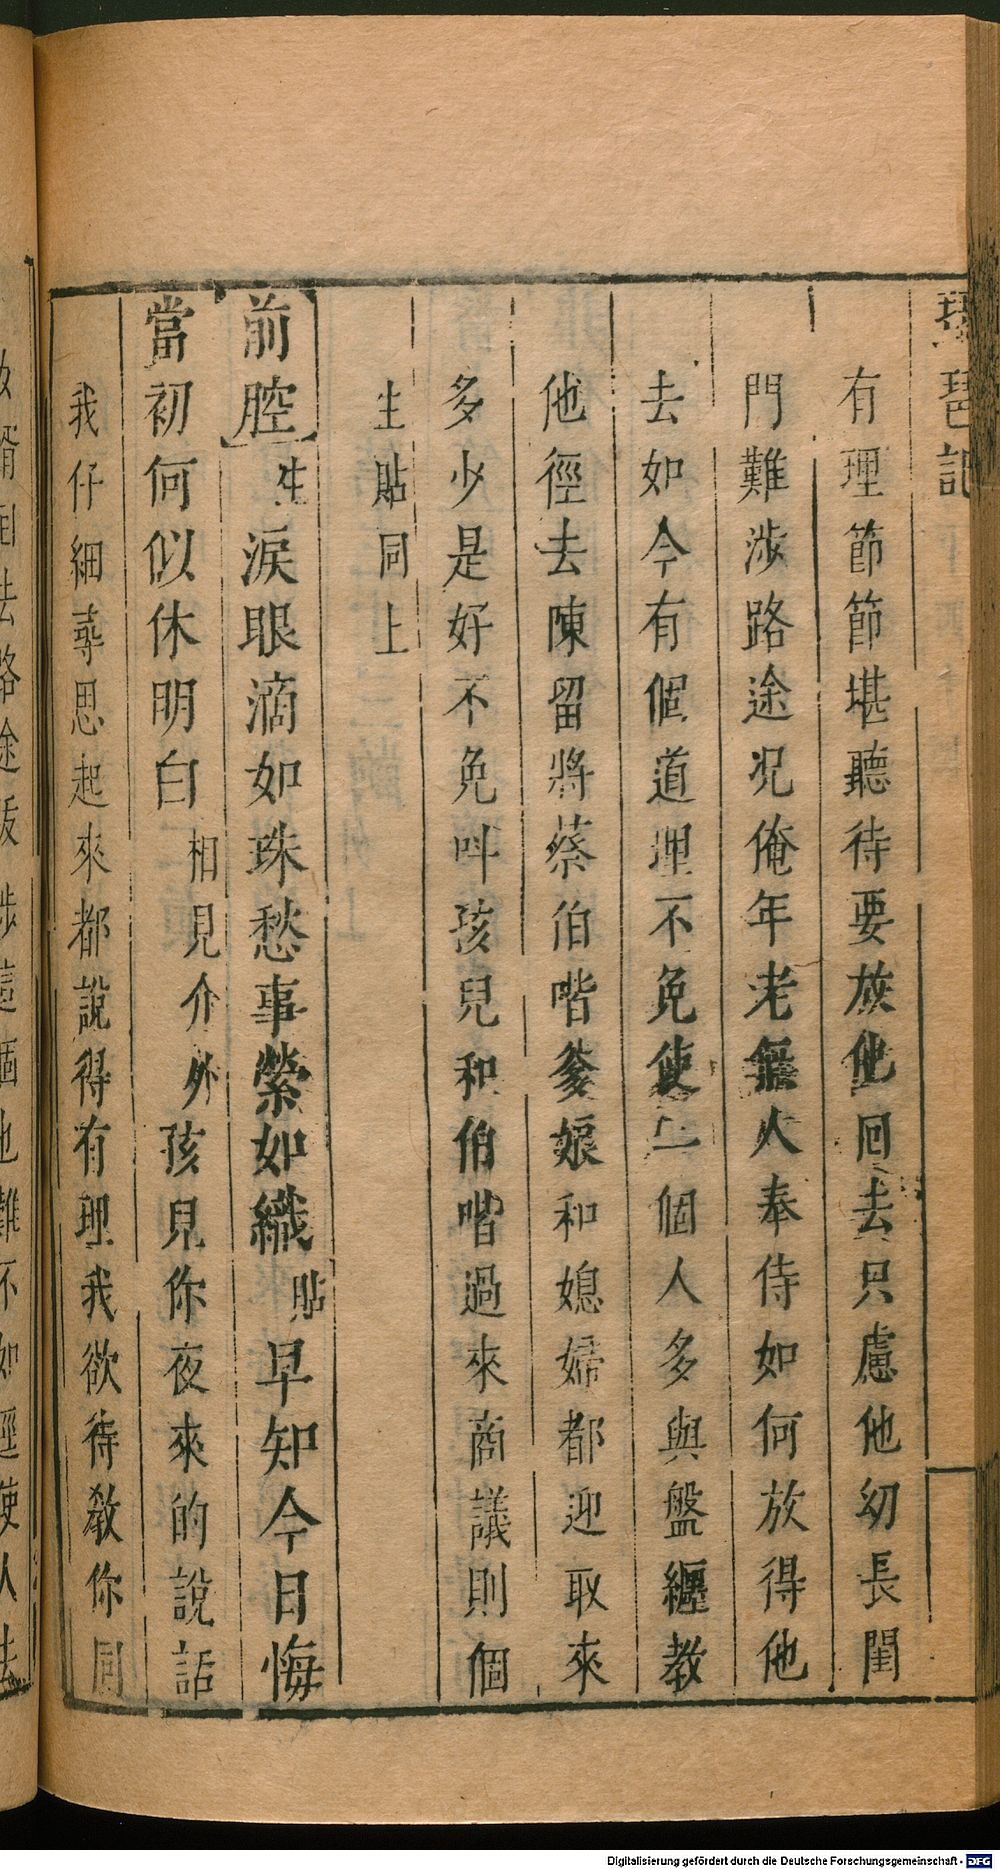 琵琶記
有理節節堪聽待要放他囘去只慮他幼長閨
門難涉路途况俺年老無人奉侍如何放得他
去如今有個道理不免使一個人多與盤纏教
他徑去陳留將蔡伯喈爹娘和媳婦都迎取來
多少是好不免呌孩兒和伯喈過來商議則個
生貼同上
前腔生淚眼滴如珠愁事縈如織貼早知今日悔
當初何似休明白相見介外孩兒你夜來的說話
我仔細尋思起來都說得有理我欲待教你同
女壻同去路途跋涉這個也難不如徑使人去
Digitalisierung gefördert durch die Deutsche Forschungsgemeinschaft - DFG